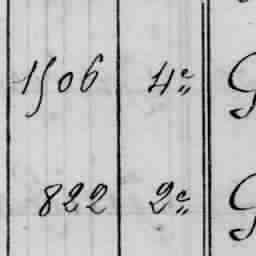 1506 4e G
822 2e G